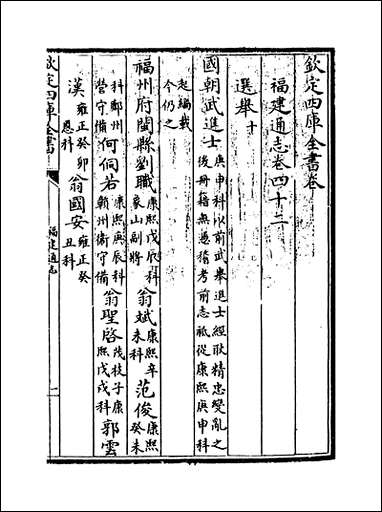 欽定四庫全書卷
福建通志卷四十二
選舉十
國朝武進士庚申科以前武舉進士經耿精忠變亂之後冊籍無憑稽考前志祗從康熙庚申科
起編載今仍之
福州府閩縣劉職康熙戊辰科象山副將翁斌康熙辛未科范俊康熙癸未
科鄜州營守備何侗若康熙庚辰科贛州衛守備翁聖啓茂枝子康熙戊戌科郭雲
漢雍正癸卯恩科翁國安雍正癸丑科
欽定四庫全書
福建通志
一